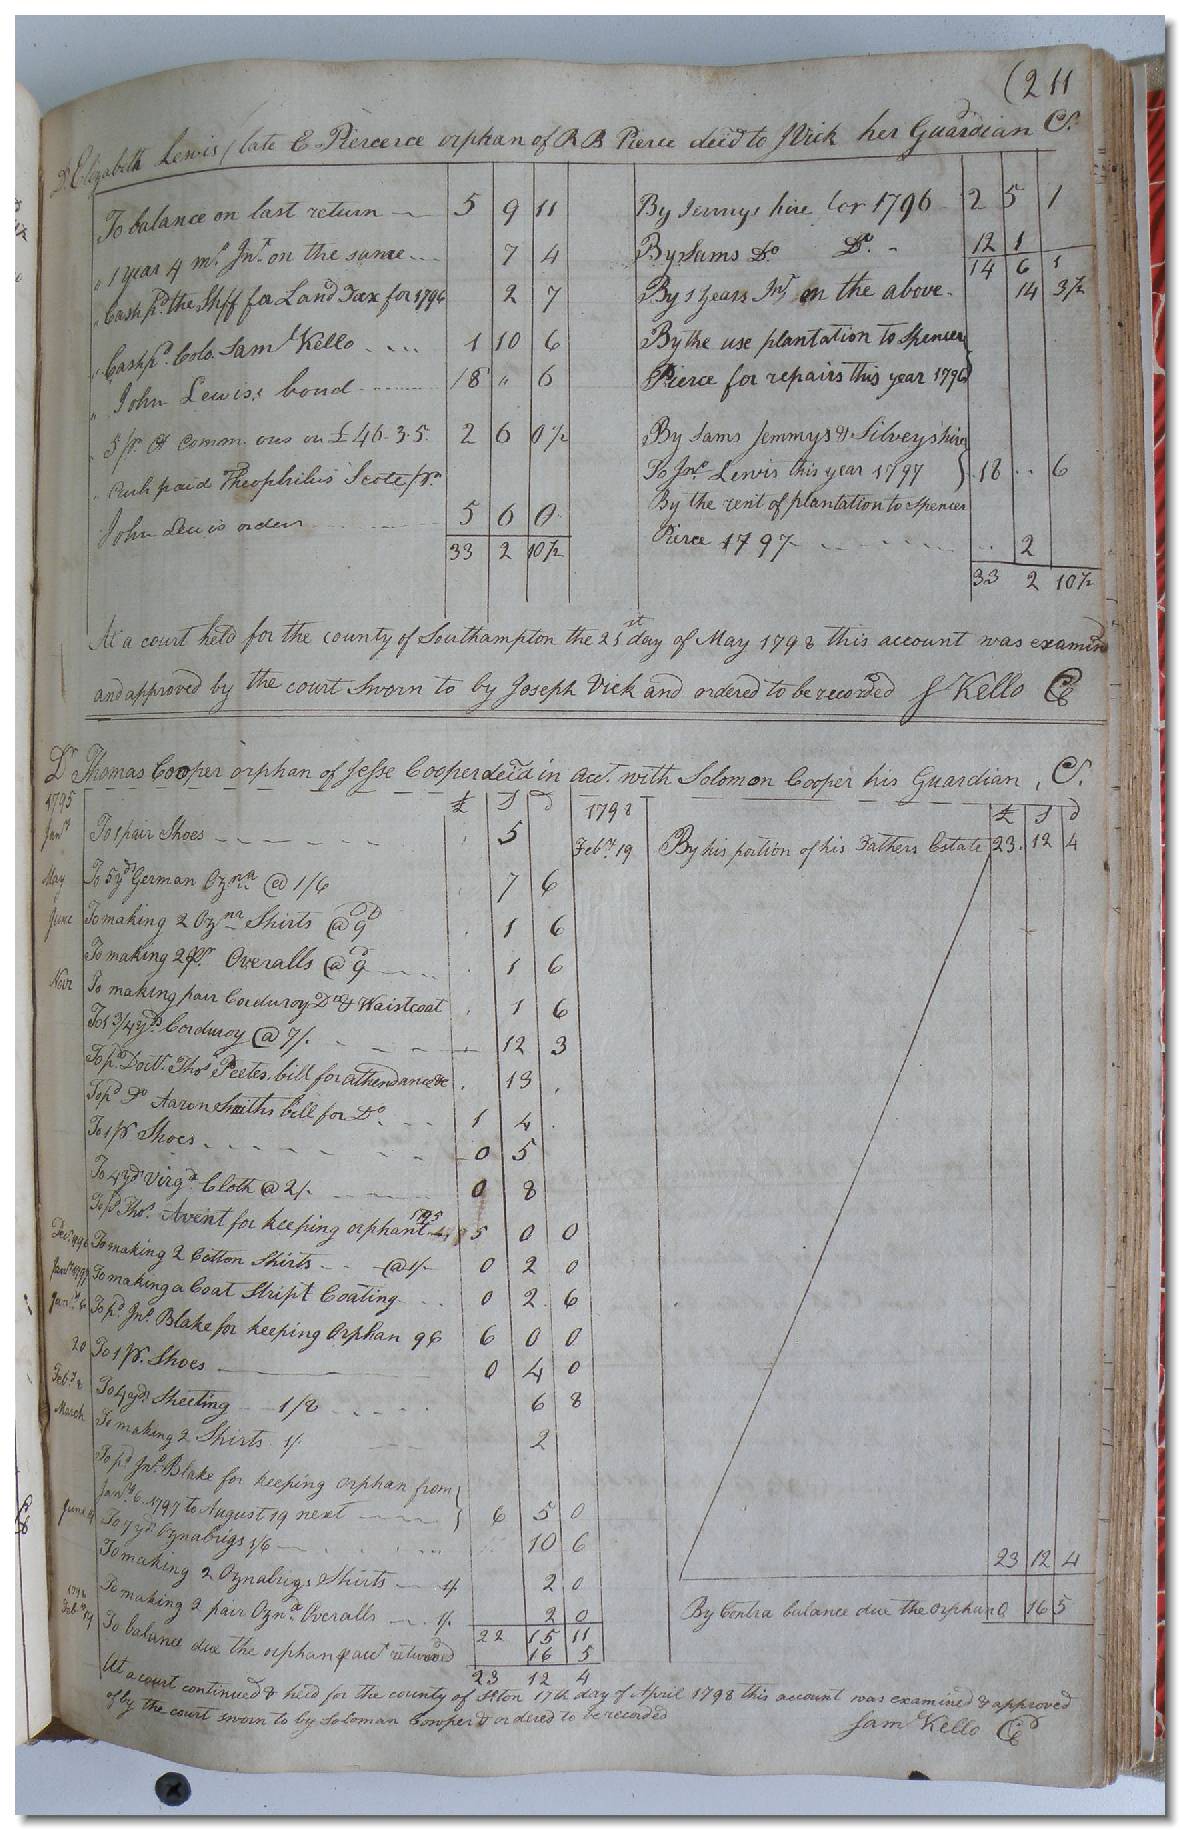 (211
Dr Elizabeth Lewis (late E Piercerce orphan of R B Pierce decd to J Vick her Guardian Cr.
To balance on last return 5 9 11
" 1 year 4 ms Int. on the same 7 4
" Cash pd. the Shff for Land Tax for 1796 2 7
" Cash pd. Colo. Saml Kello 1 10 6
" John Lewis's bond 18 " 6
" 5 pr. Ct comm. ons on £46.3.5. 2 6 0½
" Cash paid Theophilus Scote pr.
John Lewis order 5 6 0
33 2 10½
By Jennys hire for 1796 2 5 1
By Sams Do Do. 12 1
14 6 1
By 1 Years Int on the above 14 3½
By the use plantation to Spencer
Pierce for repairs this year 1796
By Sams Jemmys & Silveys hire
To Jno. Lewis this year 1797 18 .. 6
By the rent of plantation to Spencer
Pierce 1797 .. 2
33 2 10½
At a court held for the county of Southampton the 21st day of May 1798 this account was examined
and approved by the court Sworn to by Joseph Vick and ordered to be recorded S Kello CC
Dr Thomas Cooper orphan of Jesse Cooper decd in acct. with Solomon Cooper his Guardian, Cr.
1795 £ S d 1798 £ S d
Jany To 1 pair Shoes 5
Feby. 19 By his portion of his Fathers Estate 23. 12 4
May To 5 yds German Ozna @ 1/6 7 6
June To making 2 Ozna Shirts @ 9d 1 6
To making 2 pr. Overalls @ 9d 1 6
Novr To making pair Corduroy Do & Waistcoat 1 6
To 1 3/4 yds. Corduroy @ 7/. 12 3
To pd Doctr. Thos Peetes bill for attendance &c 13
To pd Do Aaron Smiths bill for Do. 1 4
To 1 pr Shoes 0 5
To 4 yds Virga Cloth @ 2/. 0 8
To pd Thos. Avent for keeping orphant 1795 5 0 0
Decr 1796 To making 2 Cotton Shirts @ 1/. 0 2 0
Jany 1797 To making a Coat Stript Coating 0 2 6
Jany. 6 To pd Jno. Blake for keeping Orphan 96 6 0 0
20 To 1 pr. Shoes 0 4 0
Feby To 4 yds Sheeting 1/8 6 8
March To making 2 Shirts 1/. 2
To pd Jno. Blake for keeping orphan from
Jany. 6. 1797 to August 19 next 6 5 0
June To 7 yds Oznabrigs 1/6 10 6
To making 2 Oznabrigs Shirts 1/. 2 0
To making 2 pair Ozna Overalls 1/. 2 0
22 15 11
1798 Feby 19 To balance due the orphan pr acct returned 16 5
23 12 4
23 12 4
By Contra balance due the orphan 0 16 5
At a court continued & held for the county of Sthton 17th day of April 1798 this account was examined & approved
of by the court sworn to by Soloman Cowper & ordered to be recorded
Saml Kello CC